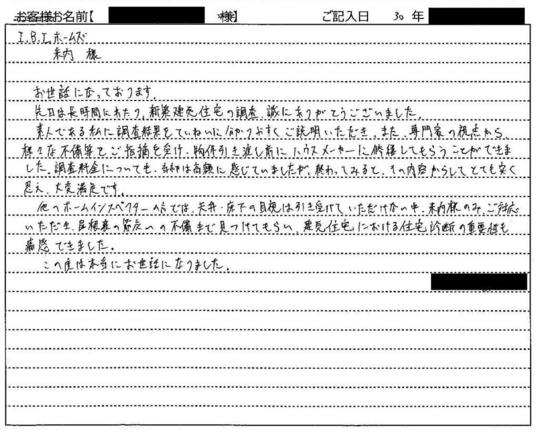 お客様お名前【 様】 ご記入日 30年
I.B.I.ホームズ
米内 様
お世話になっております。
先日は長時間にわたり、新築建売住宅の調査、誠にありがとうございました。
素人である私に調査結果をていねいに分かりやすくご説明いただき、また、専門家の視点から、
様々な不備等をご指摘を受け、物件引き渡し前にハウスメーカーに修繕してもらうことができま
した。調査料金についても、当初は高額に感じていましたが、終わってみると、その内容からしてとても安く
思え、大変満足です。
他のホームインスペクターの方では、天井・床下の目視は引き受けていただけない中、米内様のみ、ご対応
いただき、屋根裏の箇所の不備まで見つけてもらい、建売住宅における住宅診断の重要性も
痛感できました。
この度は本当にお世話になりました。